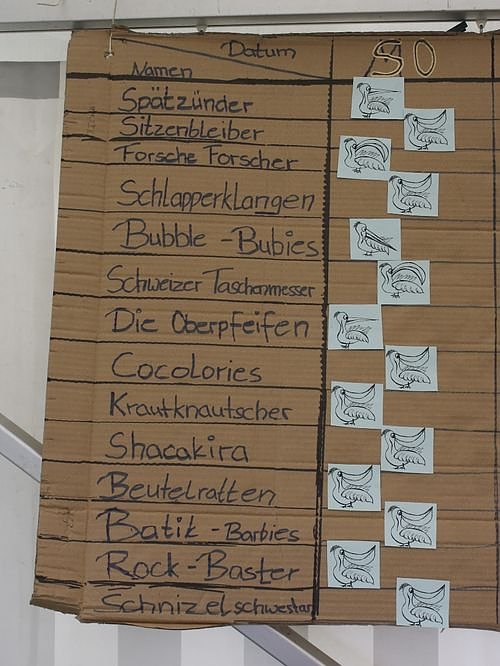 Datum
SO
Namen
Spätzünder
Sitzenbleiber
Forsche Forscher
Schlapperklangen
Bubble-Bubies
Schweizer Taschenmesser
Die Oberpfeifen
Cocolories
Krautknautscher
Shacakira
Beutelratten
Batik-Barbies
Rock-Baster
Schnizelschwestan